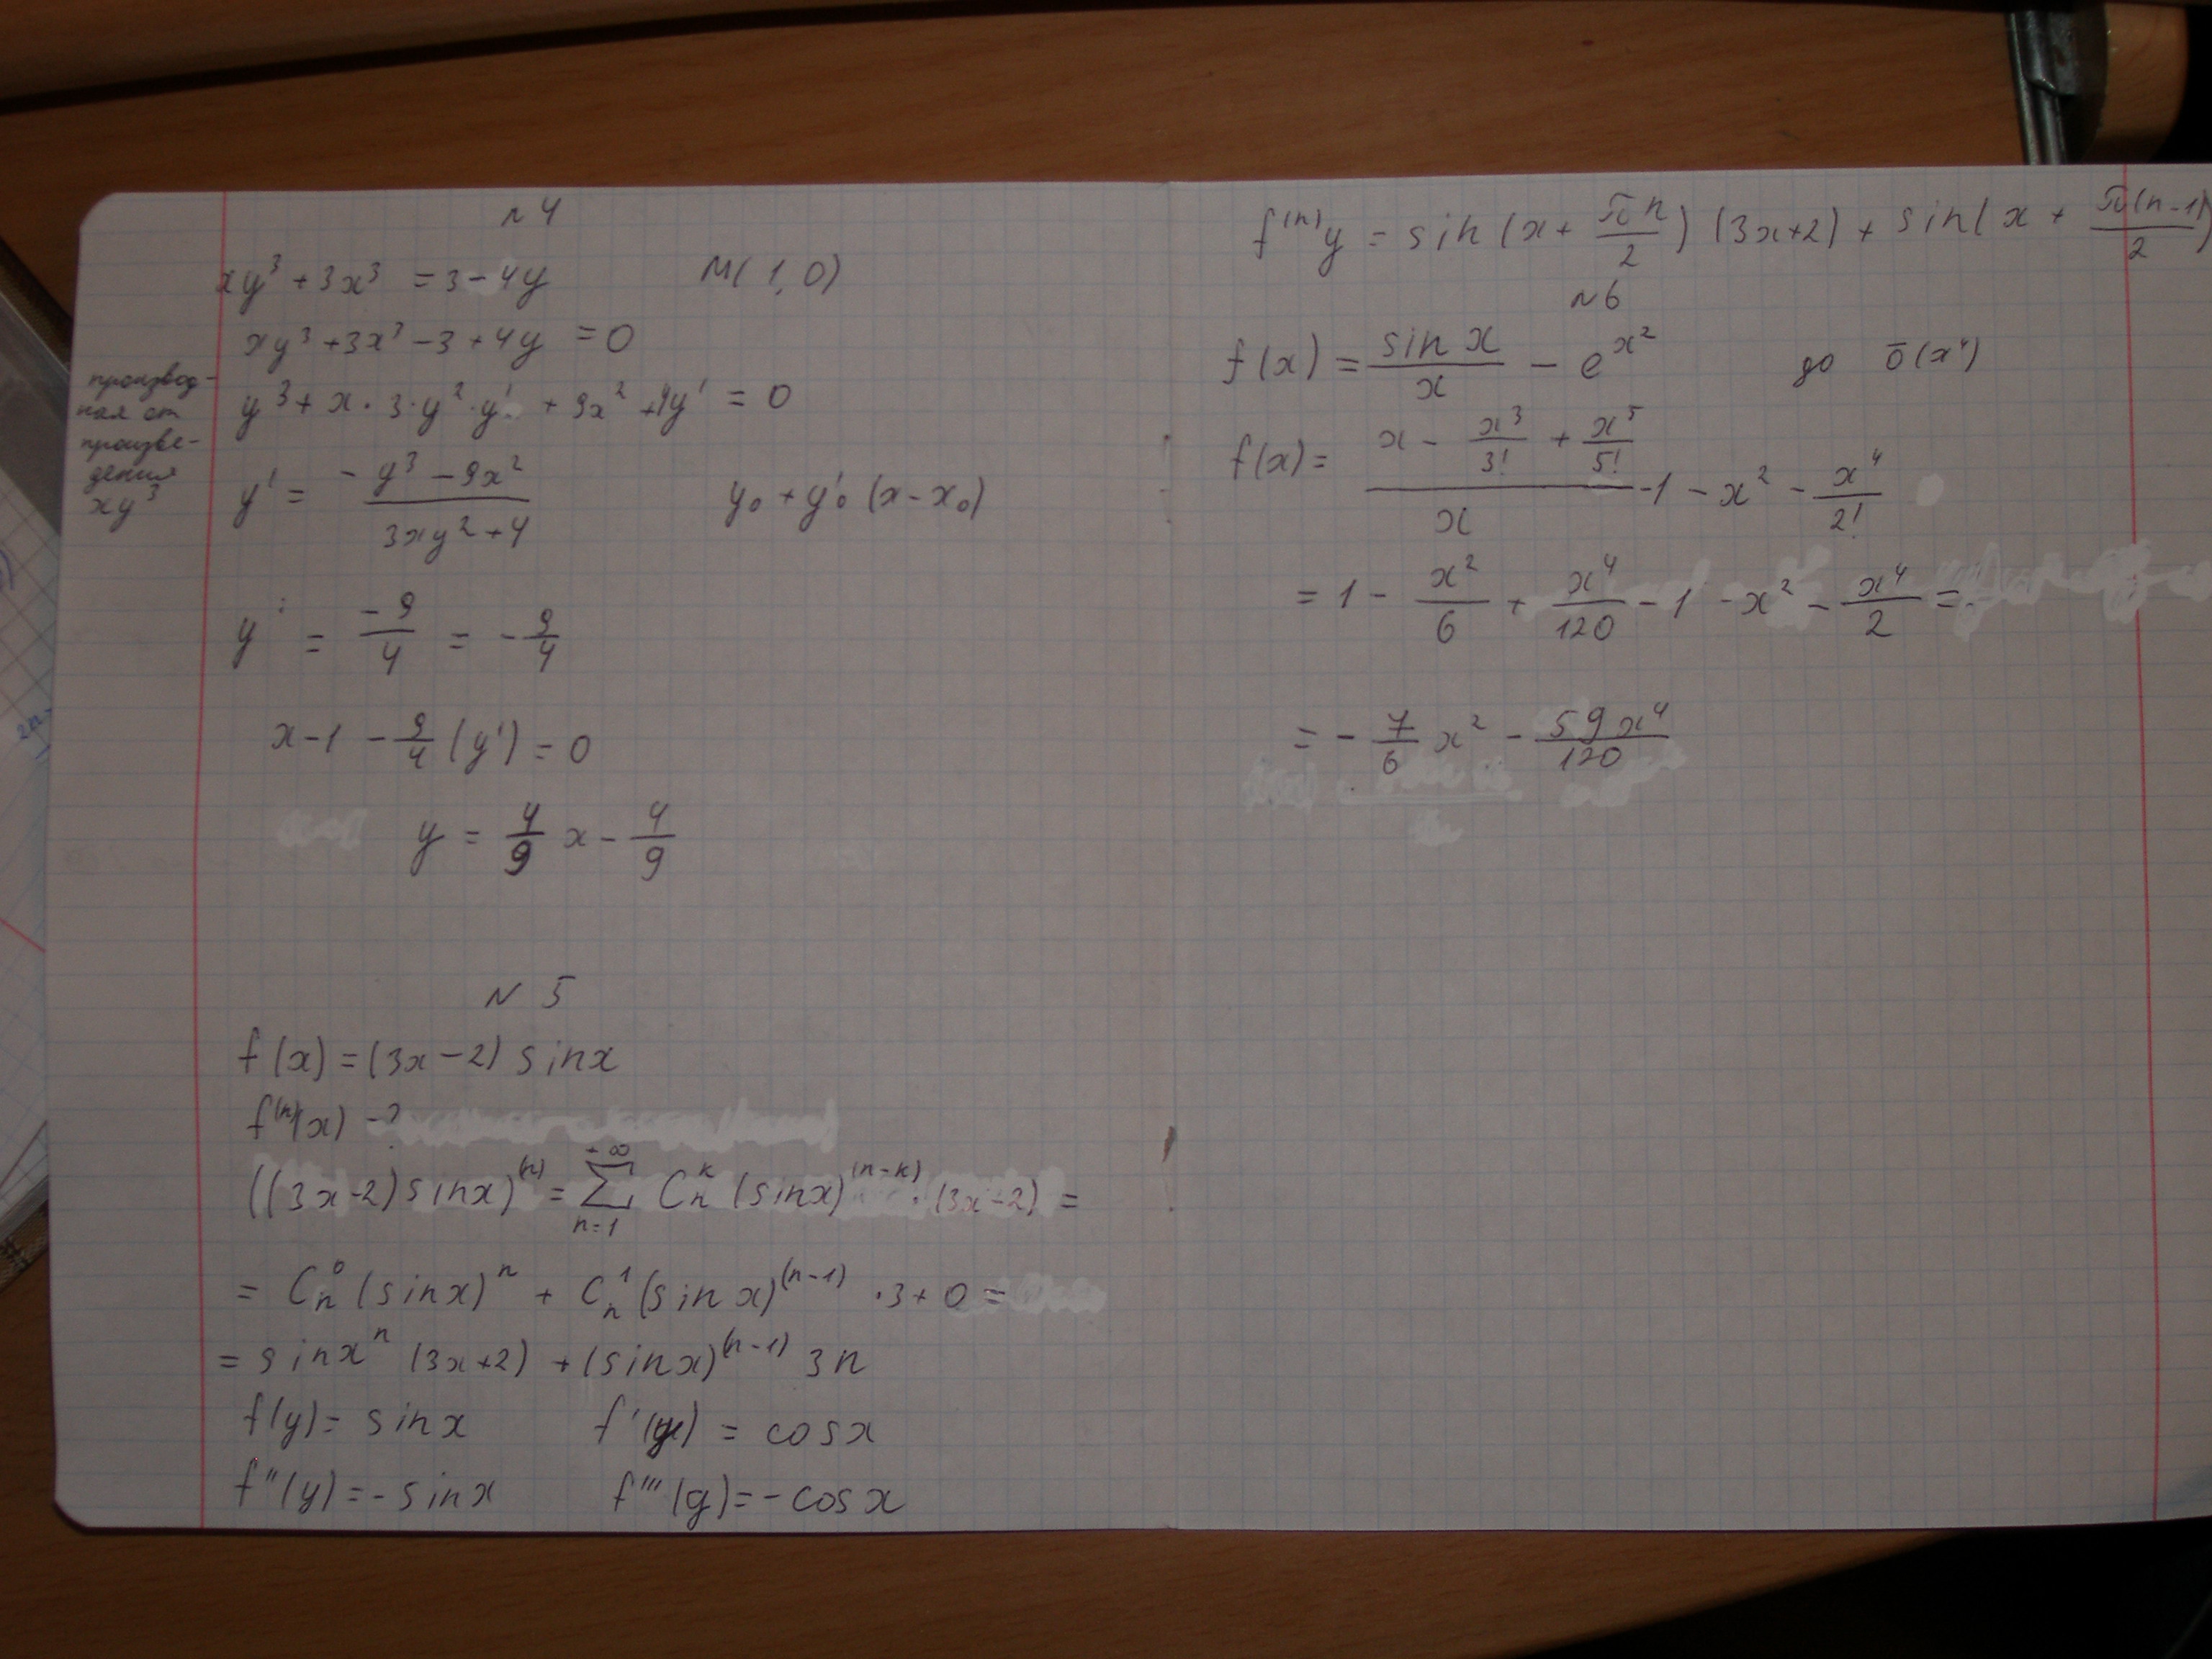 №4
xy³ + 3x³ = 3 - 4y M(1,0)
xy³ + 3x³ - 3 + 4y = 0
производ-
ная от
произве-
дения
xy³
y³ + x · 3 · y² · y' + 9x² + 4y' = 0
y' = (-y³ - 9x²)/(3xy² + 4) y₀ + y'₀ (x - x₀)
y' = -9/4 = -9/4
x - 1 - 9/4 (y') = 0
y = 4/9 x - 4/9
№ 5
f(x) = (3x - 2) sin x
f⁽ⁿ⁾(x) - ?
((3x - 2) sin x)⁽ⁿ⁾ = ∑ₙ₌₁^{+∞} Cₙᵏ (sin x)⁽ⁿ⁻ᵏ⁾ · (3x - 2) =
= Cₙ⁰ (sin x)ⁿ + Cₙ¹ (sin x)⁽ⁿ⁻¹⁾ · 3 + 0 =
= sin xⁿ (3x + 2) + (sin x)⁽ⁿ⁻¹⁾ 3n
f(y) = sin x f'(y) = cos x
f''(y) = - sin x f'''(y) = - cos x
f⁽ⁿ⁾y = sin(x + πn/2) (3x + 2) + sin(x + π(n-1)/2)
№6
f(x) = sin x/x - e^{x²} до ō(x⁴)
f(x) = (x - x³/3! + x⁵/5!)/x - 1 - x² - x⁴/2!
= 1 - x²/6 + x⁴/120 - 1 - x² - x⁴/2 =
= - 7/6 x² - 59x⁴/120